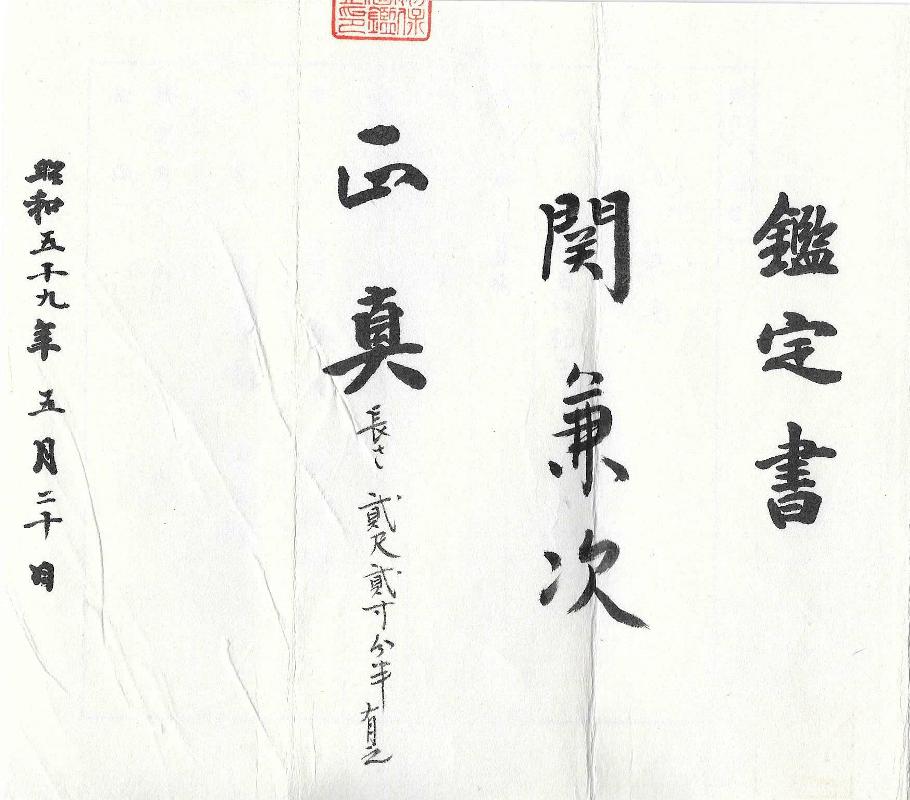 鑑定書
関兼次
正真
長さ 貳尺貳寸分半有之
昭和五十九年五月二十日